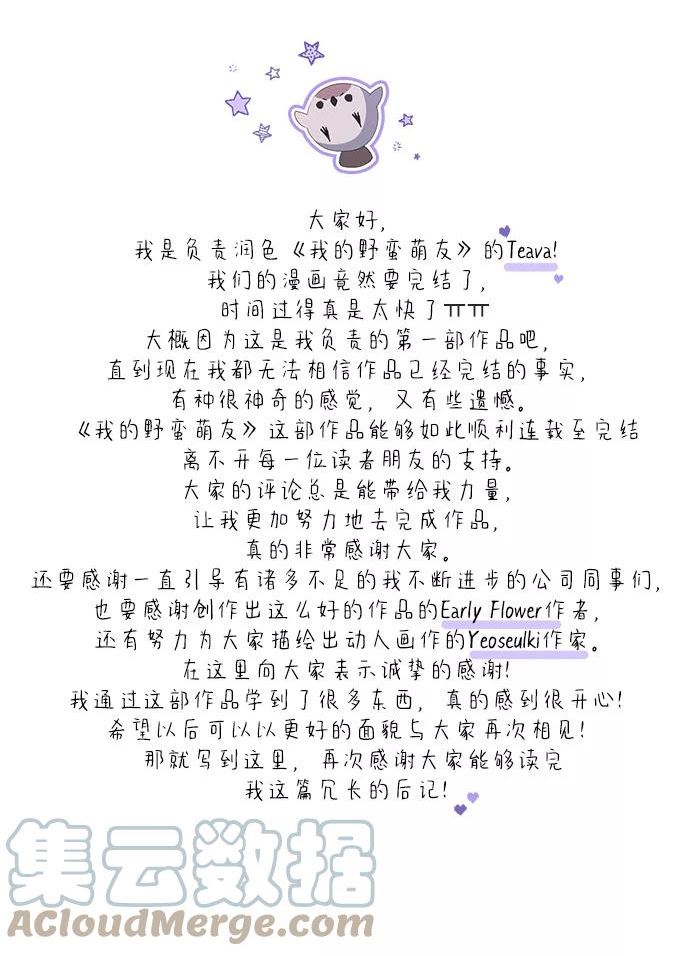 大家好，
我是负责润色《我的野蛮萌友》的Teava!
我们的漫画竟然要完结了，
时间过得真是太快了ㅠㅠ
大概因为这是我负责的第一部作品吧，
直到现在我都无法相信作品已经完结的事实，
有种很神奇的感觉，又有些遗憾。
《我的野蛮萌友》这部作品能够如此顺利连载至完结
离不开每一位读者朋友的支持。
大家的评论总是能带给我力量，
让我更加努力地去完成作品，
真的非常感谢大家。
还要感谢一直引导有诸多不足的我不断进步的公司同事们，
也要感谢创作出这么好的作品的Early Flower作者，
还有努力为大家描绘出动人画作的Yeoseulki作家。
在这里向大家表示诚挚的感谢!
我通过这部作品学到了很多东西，真的感到很开心!
希望以后可以以更好的面貌与大家再次相见!
那就写到这里，再次感谢大家能够读完
我这篇冗长的后记!
集云数据
ACloudMerge.com